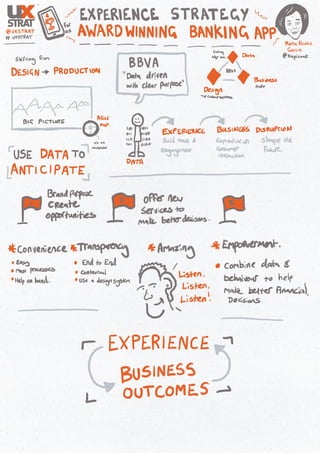 UX
STRAT
@UXSTRAT
# UXSTRAT
EXPERIENCE STRATEGY
for an
AWARD WINNING BANKING APP
Shifting from
DESIGN → PRODUCTION
BIG PICTURE
BBVA
"Data driven
with clear purpose"
Data
BBVA
Business
Design
DATA
EXPERIENCE
Build trust &
engagement
BUSINESS
Capitalize on
Consumer
interactions
DISRUPTION
Shape the
Future
USE DATA TO
ANTICIPATE
Brand purpose
Create
opportunities
offer new
Services to
make better decisions.
* Convenience
• Easy
• most processes
• Help on hand.
* Transparency
• End to End
• Contextual
• Use a design system
* Amazing
Listen,
Listen,
Listen!
* Empowerment.
• Combine data &
behaviour to help
make better Financial
Decisions.
EXPERIENCE
BUSINESS
OUTCOMES